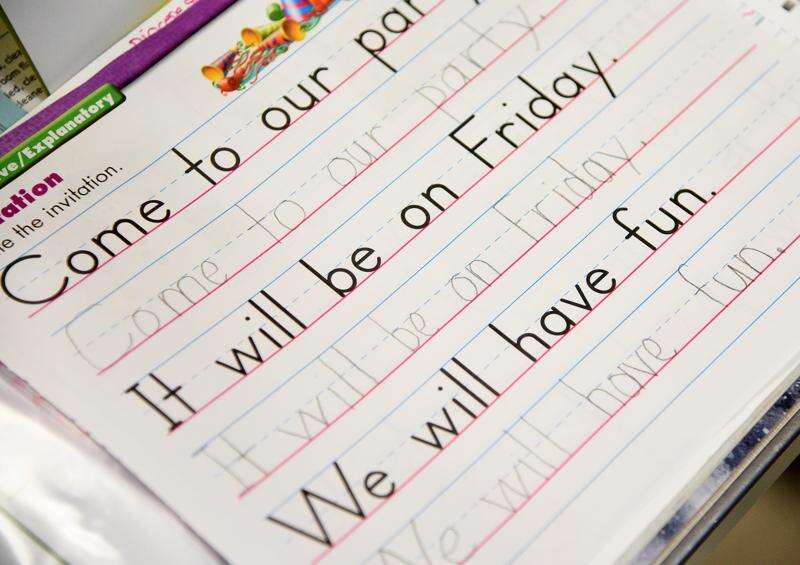 ve/Explanatory
ation
e the invitation.
Come to our party
Come to our party.
It will be on Friday.
It will be on Friday.
We will have fun.
We will have fun.